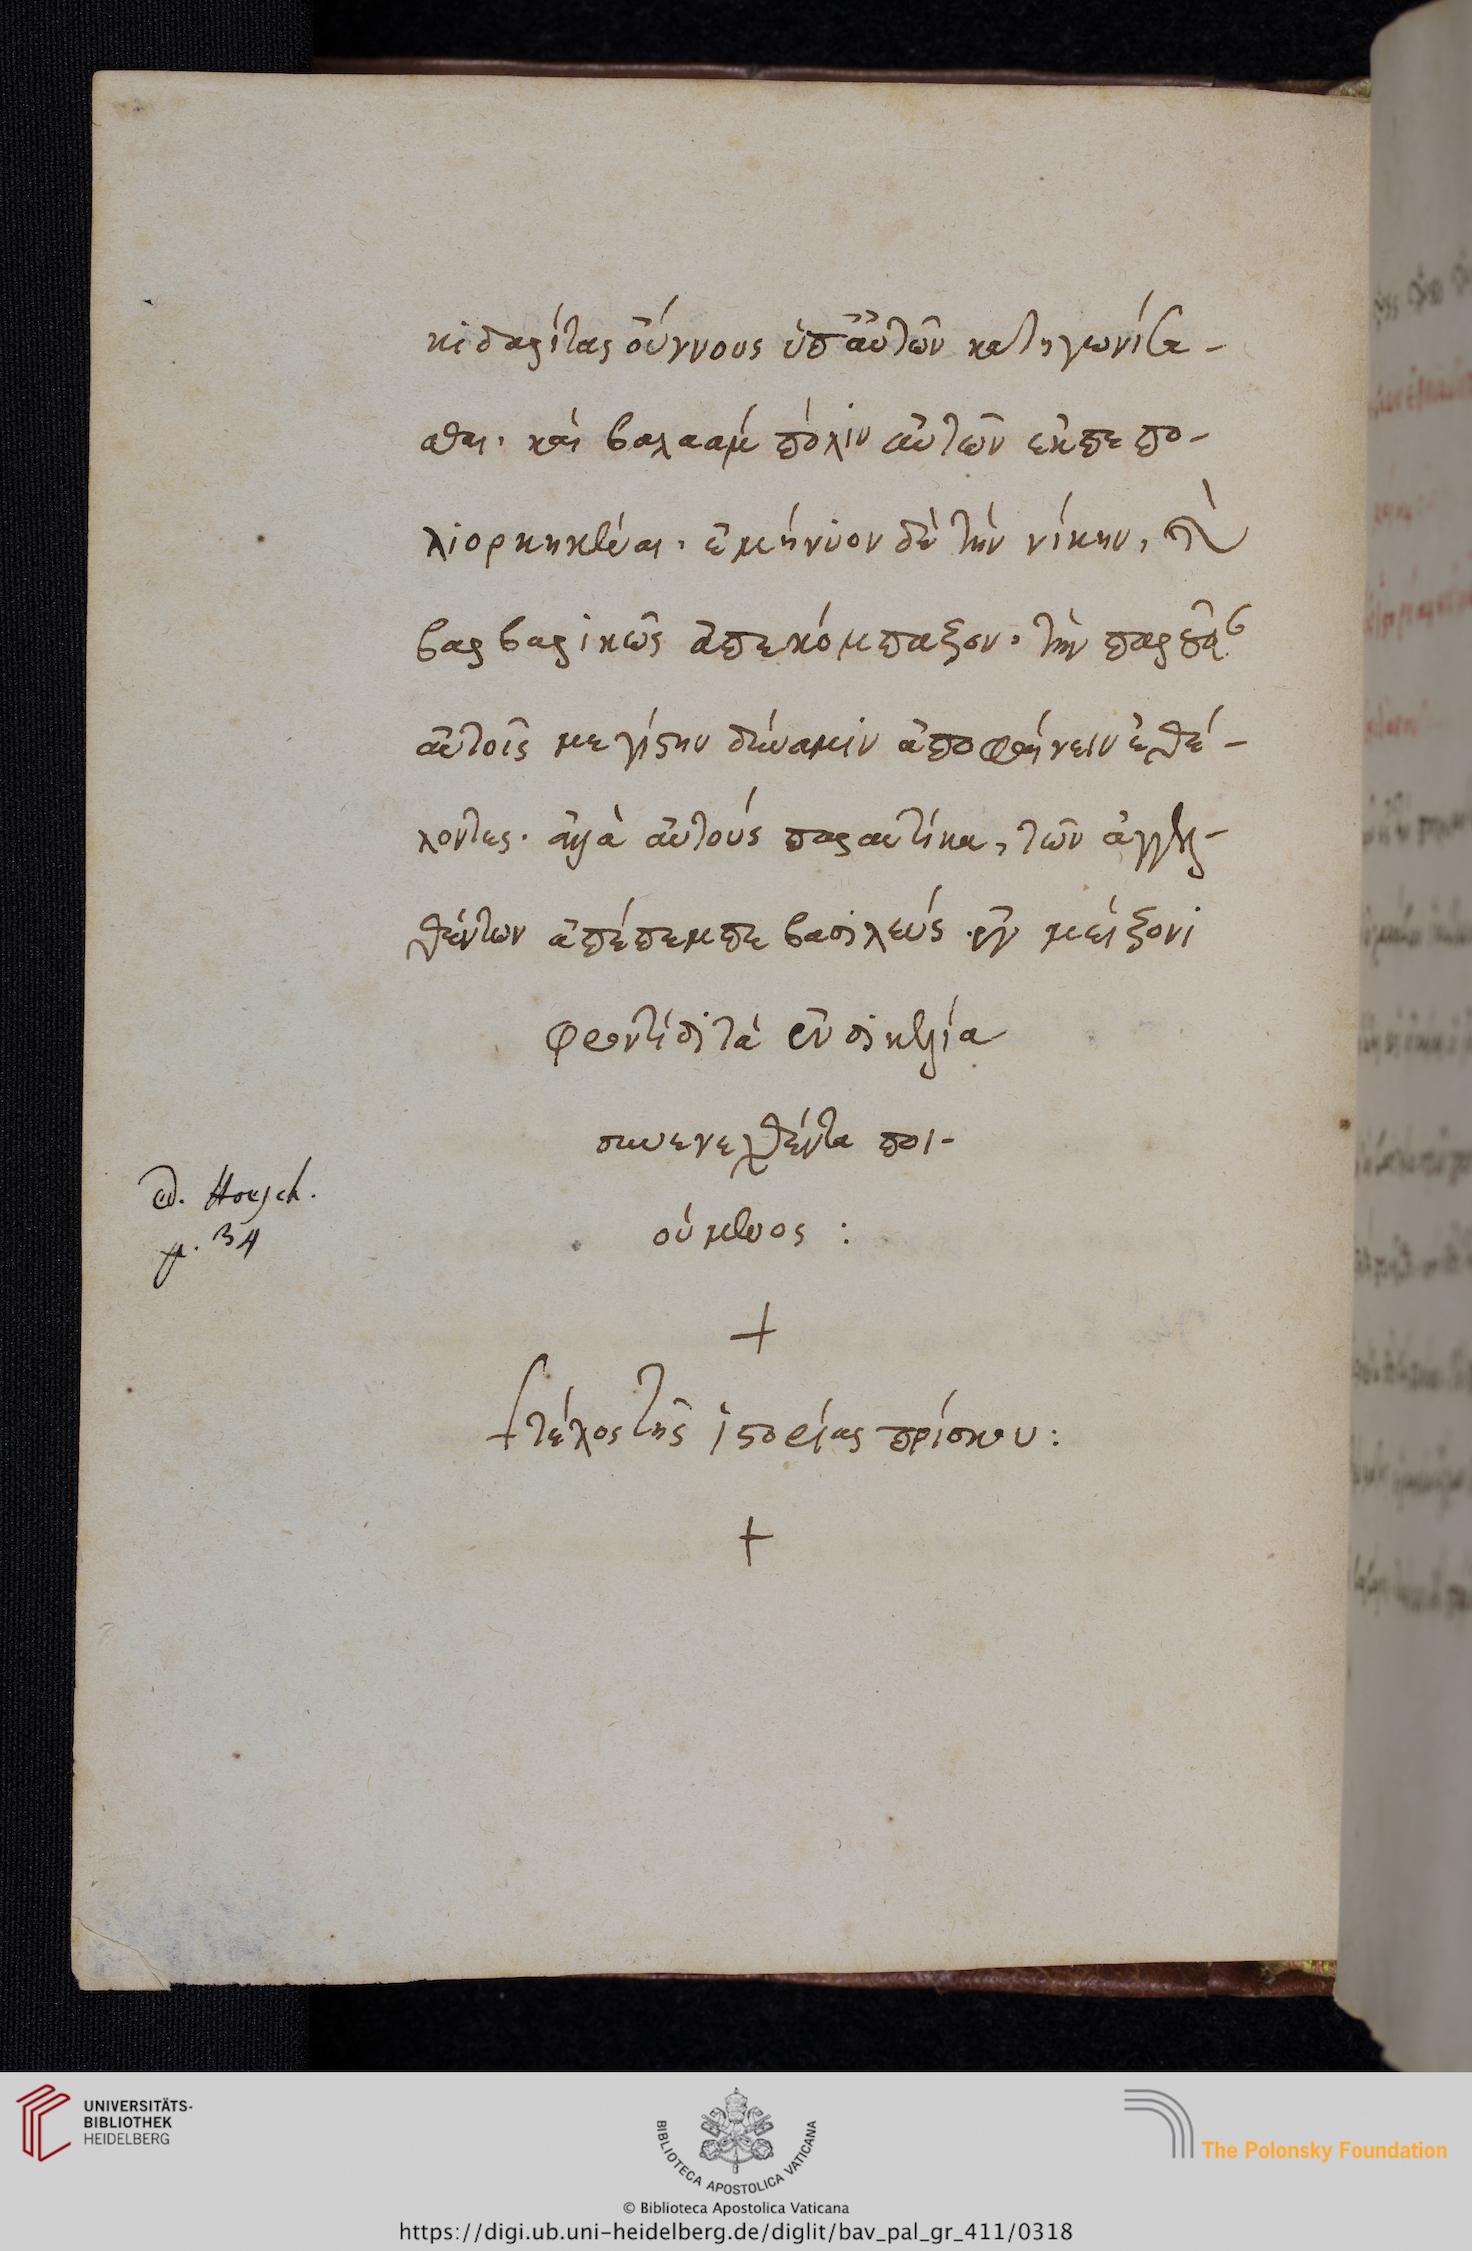 κιδαρίτας οὔννους ὑπ αὐτῶν κατηγωνίσα-
σθαι. καὶ βαλαὰμ πόλιν αὐτῶν ἐκπεπο-
λιορκηκέναι. ἐμήνυον δὲ τὴν νίκην, καὶ
βαρβαρικῶς ἀπεκόμπαζον. τὴν παροῦσαν
αὐτοῖς μεγίστην δύναμιν ἀποφαίνειν ἐθέ-
λοντες. ἀλλὰ αὐτοὺς παραυτίκα, τῶν ἀγγελ-
θέντων ἀπέπεμπε βασιλεύς. ἐν μείζονι
φροντίδι τὰ ἐν σικελία
συνενεχθέντα ποι-
ούμενος :
ed. Hoesch.
p. 34
+
+ τέλος τῆς ἱστορίας πρίσκου :
+
UNIVERSITÄTS-
BIBLIOTHEK
HEIDELBERG
BIBLIOTECA APOSTOLICA VATICANA
The Polonsky Foundation
© Biblioteca Apostolica Vaticana
https://digi.ub.uni-heidelberg.de/diglit/bav_pal_gr_411/0318